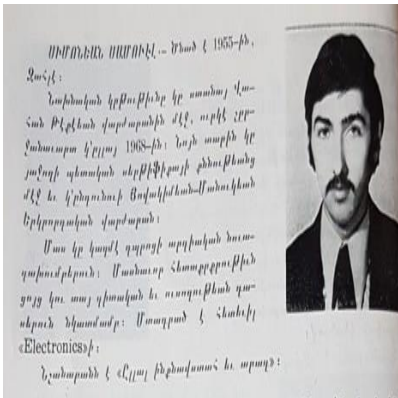 ՍԻՄՈՆԵԱՆ ՍԱՄՈՒԷԼ.— Ծնած է 1955-ին,
Զահլէ:
Նախնական կրթութիւնը կը ստանայ Վա-
հան Թէքէեան վարժարանին մէջ, ուրկէ շրջ-
ջանաւարտ կ'ըլլայ 1968-ին: Նոյն տարին կը
յաջողի պետական սերթիֆիքայի քննութեանց
մէջ եւ կ'ընդունուի Յովակիմեան-Մանուկեան
Երկրորդական վարժարան:
Մաս կը կազմէ դպրոցի արդիական նուա-
գախումբերուն: Մասնաւոր հետաքրքրութիւն
ցոյց կու տայ գիտական եւ ուսողութեան դա-
սերուն նկատմամբ: Մտադրած է հետեւիլ
«Electronics»ի:
Նշանաբանն է «Ըլլալ ինքնավստահ եւ արագ»: